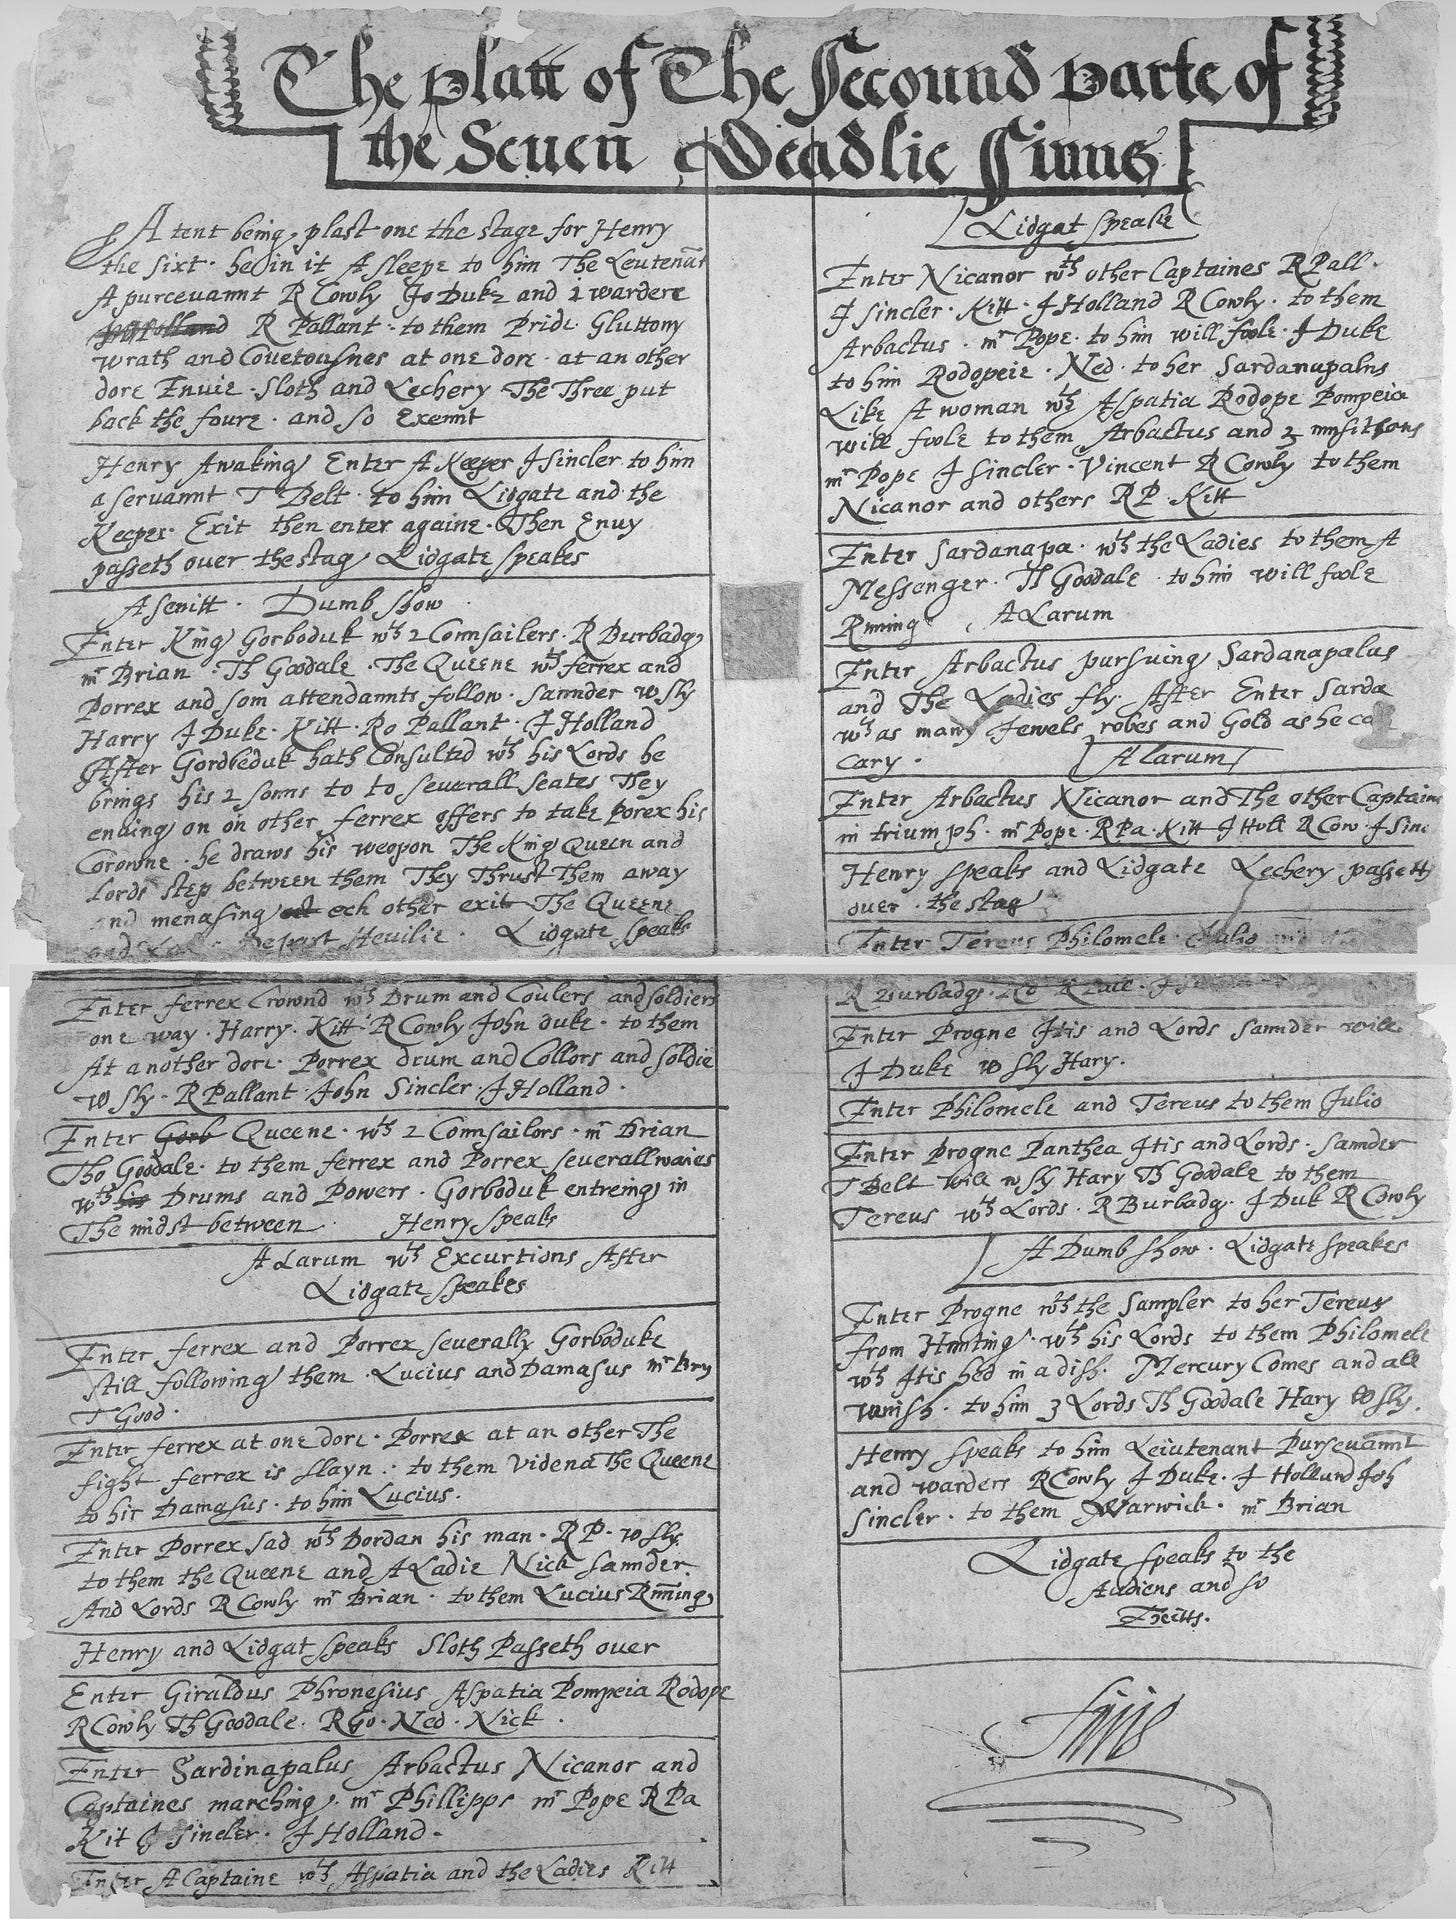 The platt of The Secound parte of
the Seuen Deadlie Sinns
A tent being plast one the stage for Henry
the sixt . he in it A sleepe to him The Leutenāt
A purceuannt R Cowly Jo Duke and 1 wardere
R Pallant . to them Pride . Gluttony
wrath and Couetousnes at one dore . at an other
dore Enuie . Sloth and Lechery The Three put
back the foure . and so Exeunt
Henry Awaking Enter A Keeper J Sincler to him
a seruannt T Belt . to him Lidgate and the
Keeper . Exit then enter againe . Then Enuy
passeth ouer the stag Lidgate speakes
A senitt . Dumb show .
Enter King Gorboduk wth 2 Counsailers . R Burbadg
mr Brian . Th Goodale . The Queene wth ferrex and
Porrex and som attendannts follow . saunder w sly
Harry J Duke . Kitt . Ro Pallant . J Holland
After Gordbeduk hath Consulted wth his Lords he
brings his 2 sonns to to seuerall seates They
enuing on on other ferrex offers to take Porex his
Corowne . he draws his weopon The King Queen and
Lords step between them They Thrust Them away
and menasing ect ech other exit The Queene
and Depart Heuilie . Lidgate speaks
Enter ferrex Crownd wth Drum and Coulers and soldiers
one way . Harry . Kitt . R Cowly John duke . to them
At another dore . Porrex drum and Collors and soldie
W sly . R Pallant . John Sincler . J Holland .
Enter Gorb Queene . wth 2 Counsailors . mr Brian
Tho Goodale . to them ferrex and Porrex seuerall waies
wth his Drums and Powers . Gorboduk entreing in
The midst between . Henry speaks
A Larum wth Excurtions After
Lidgate speakes
Enter ferrex and Porrex seuerally Gorboduke
still following them . Lucius and Damasus mr Bry
T Good .
Enter ferrex at one dore . Porrex at an other The
fight ferrex is slayn : to them Videna The Queene
to hir Damasus . to him Lucius .
Enter Porrex sad wth Dordan his man . R P . w sly .
to them the Queene and A Ladie Nick saunder .
And Lords R Cowly mr Brian . to them Lucius Runing
Henry and Lidgat speaks Sloth Passeth ouer
Enter Giraldus Phronesius Aspatia Pompeia Rodope
R Cowly Th Goodale . R Go . Ned . Nick .
Enter Sardinapalus Arbactus Nicanor and
Captaines marching . mr Phillipps mr Pope R Pa
Kit J Sincler . J Holland .
Enter A Captaine wth Aspatia and the Ladies Kitt
Lidgat speake
Enter Nicanor wth other Captaines R Pall .
J sincler . Kitt . J Holland R Cowly . to them
Arbactus . mr Pope . to him will foole . J Duke
to him Rodopeie . Ned . to her Sardanapalus
Like A woman wth Aspatia Rodope Pompeia
will foole to them Arbactus and 3 musitions
mr Pope J sincler . Vincent R Cowly to them
Nicanor and others R P . Kitt
Enter sardanapa . wth the Ladies to them A
Messenger . Th Goodale . to him will foole
Runing A Larum
Enter Arbactus pursuing Sardanapalus
and The Ladies fly . After Enter Sarda
wth as many Jewels robes and Gold as he ca
cary .
A larum
Enter Arbactus Nicanor and The other Captain
in triumph . mr Pope . R Pa . Kitt J Holl R Cow . J Sinc
Henry speaks and Lidgate Lechery passeth
ouer . the stag
Enter Tereus Philomele . Julio
R Burbadge . Ro R Pall . J s
Enter Progne Itis and Lords saunder will
J Duke w sly Hary .
Enter Philomele and Tereus to them Julio
Enter Progne Panthea Itis and Lords . saunder
T Belt will w sly Hary Th Goodale to them
Tereus wth Lords . R Burbadg . J Duk R Cowly
A Dumb show . Lidgate speakes
Enter Progne wth the Sampler to her Tereus
from Hunting . wth his Lords to them Philomele
wth Itis hed in a dish . Mercury Comes and all
Vanish . to him 3 Lords Th Goodale Hary W sly .
Henry speaks to him Leiutenant Purseuannt
and warders R Cowly J Duke . J Holland Joh
Sincler . to them Warwick . mr Brian
Lidgate speaks to the
Audiens and so
Exitts .
Finis